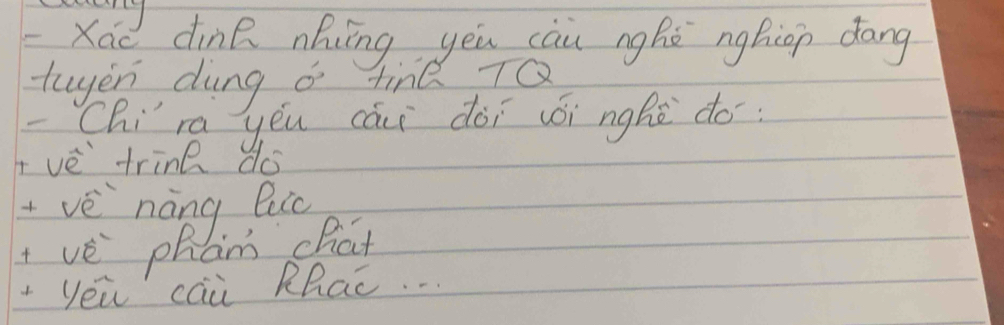 - Xác định những yêu cầu nghề nghiệp đang
tuyển dụng ở tỉnh TQ
- Chỉ ra yêu cầu đối với nghề đó:
+ về trình độ
+ về năng lực
+ về phẩm chất
+ yêu cầu khác...